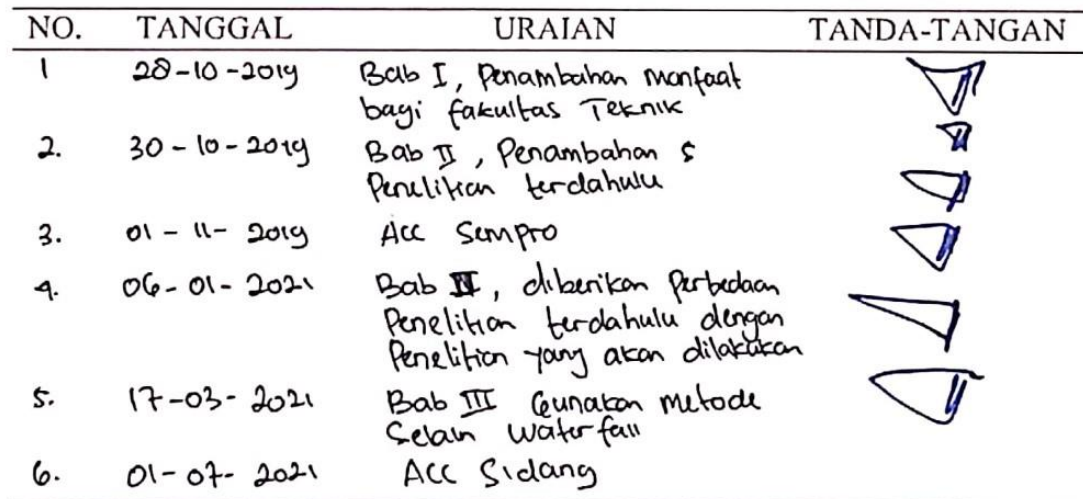 NO. TANGGAL URAIAN TANDA-TANGAN
1 28-10-2019 Bab I, Penambahan manfaat
bagi fakultas Teknik
2. 30-10-2019 Bab II, Penambahan 5
Penelitian terdahulu
3. 01-11-2019 Acc Sempro
4. 06-01-2021 Bab II, diberikan Perbedaan
Penelitian terdahulu dengan
Penelitian yang akan dilakukan
5. 17-03-2021 Bab III Gunakan metode
Selain Waterfall
6. 01-07-2021 ACC Sidang